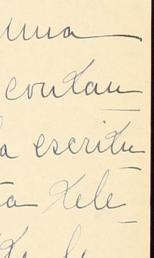 una
contan
a escritu
ta tele